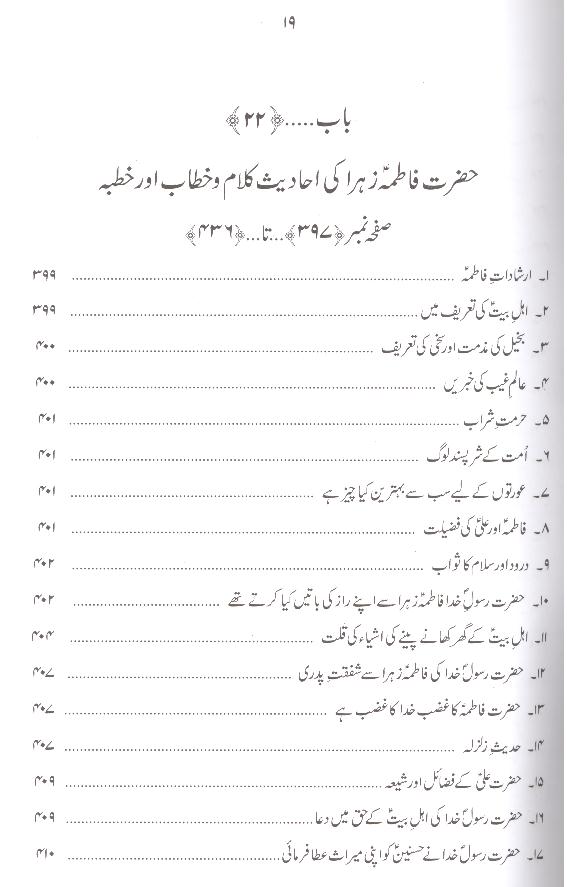 ۱۹
باب.....﴿۲۲﴾
حضرت فاطمہؑ زہرا کی احادیث کلام و خطاب اور خطبہ
صفحہ نمبر﴿۳۹۷﴾...تا...﴿۴۳۶﴾
۱۔ ارشاداتِ فاطمہؑ ........ ۳۹۹
۲۔ اہلِ بیتؑ کی تعریف میں ........ ۳۹۹
۳۔ بخیل کی مذمت اور سخی کی تعریف ........ ۴۰۰
۴۔ عالمِ غیب کی خبریں ........ ۴۰۰
۵۔ حرمتِ شراب ........ ۴۰۱
۶۔ اُمت کے شرپسند لوگ ........ ۴۰۱
۷۔ عورتوں کے لیے سب سے بہترین کیا چیز ہے ........ ۴۰۱
۸۔ فاطمہؑ اور علیؑ کی فضیلت ........ ۴۰۱
۹۔ درود اور سلام کا ثواب ........ ۴۰۲
۱۰۔ حضرت رسولِؐ خدا فاطمہؑ زہرا سے اپنے راز کی باتیں کیا کرتے تھے ........ ۴۰۲
۱۱۔ اہلِ بیتؑ کے گھر کھانے پینے کی اشیاء کی قلت ........ ۴۰۴
۱۲۔ حضرت رسولؐ خدا کی فاطمہؑ زہرا سے شفقتِ پدری ........ ۴۰۷
۱۳۔ حضرت فاطمہؑ کا غضب خدا کا غضب ہے ........ ۴۰۷
۱۴۔ حدیثِ زلزلہ ........ ۴۰۷
۱۵۔ حضرت علیؑ کے فضائل اور شیعہ ........ ۴۰۹
۱۶۔ حضرت رسولؐ خدا کی اہلِ بیتؑ کے حق میں دعا ........ ۴۰۹
۱۷۔ حضرت رسولؐ خدا نے حسنینؑ کو اپنی میراث عطا فرمائی ........ ۴۱۰